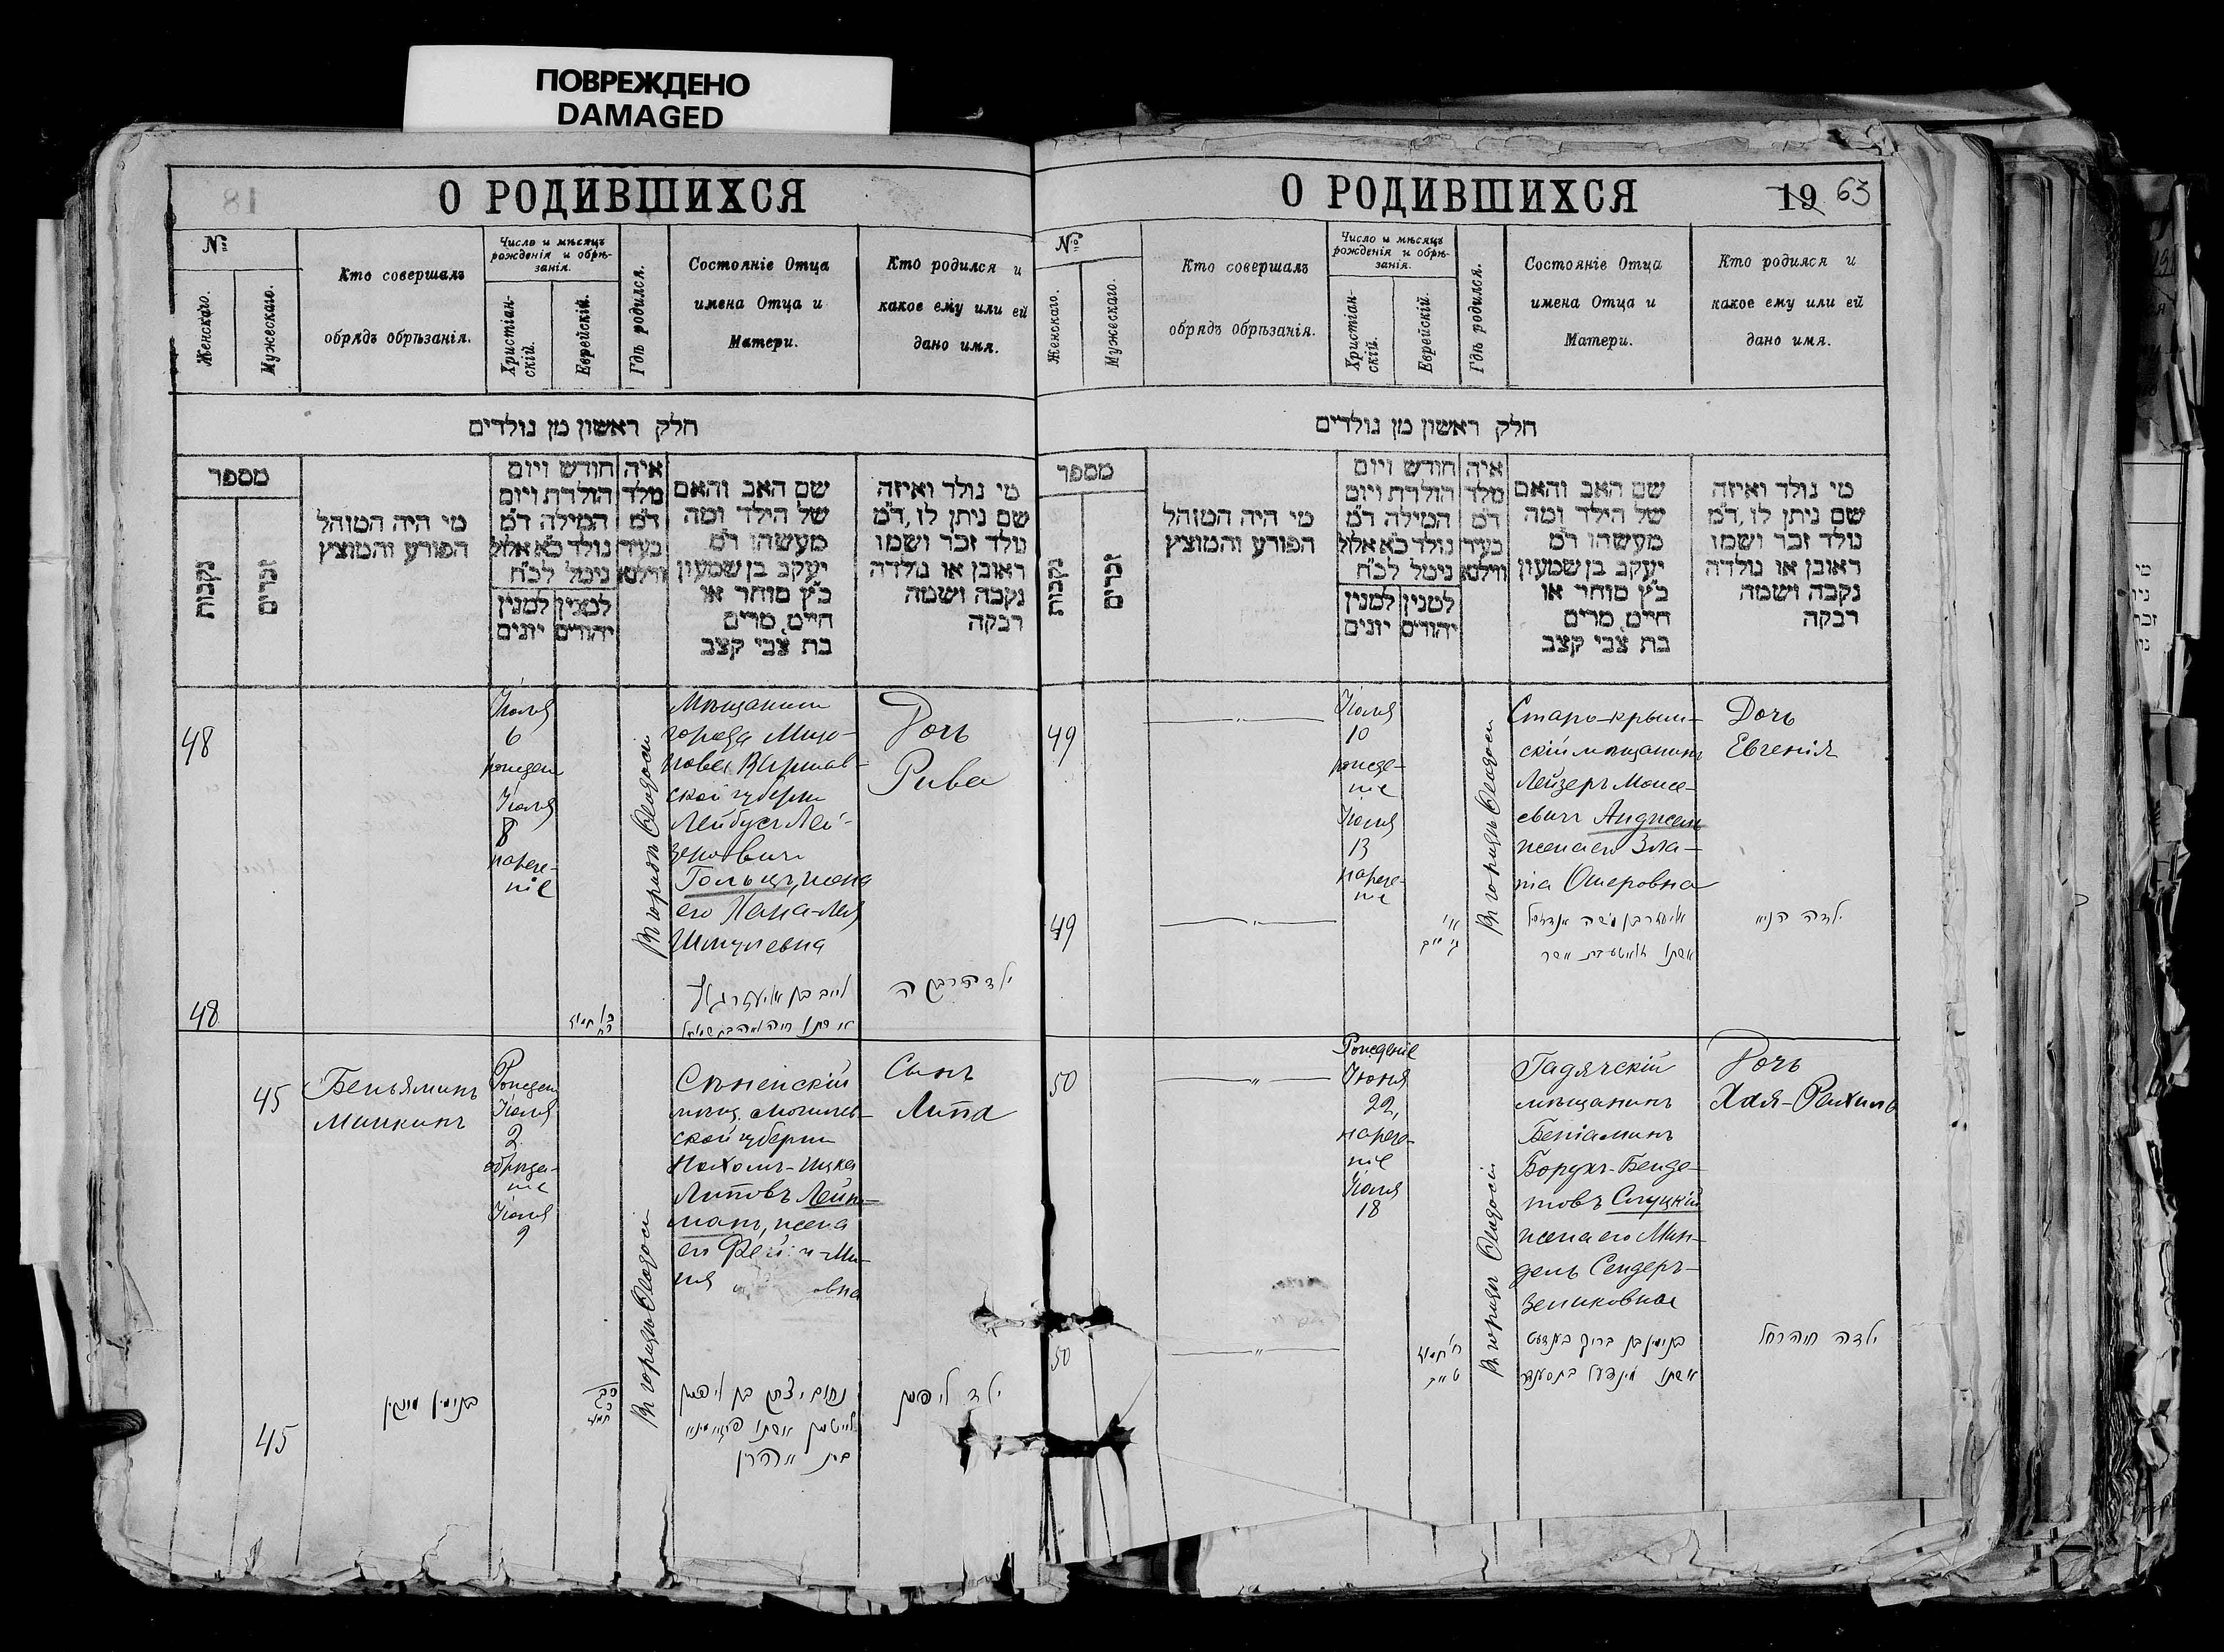 ПОВРЕЖДЕНО
DAMAGED
О РОДИВШИХСЯ
№
Женскаго.
Мужескаго.
Кто совершалъ
обрядъ обрѣзанія.
Число и мѣсяцъ
рожденія и обрѣ-
занія.
Христіан-
скій.
Еврейскій.
Гдѣ родился.
Состояніе Отца
имена Отца и
Матери.
Кто родился и
какое ему или ей
дано имя.
חלק ראשון מן נולדים
מספר
נקבות
זכרים
מי היה המוהל
הפורע והמוצץ
חודש ויום
הולדת ויום
המילה ד״מ
נולד כ״א אלול
נימל לכ״ח
למנין למנין
יהודים יונים
איה
מלד
ד״מ
בעיר
ווילנא
שם האב והאם
של הילד ומה
מעשהו ד״מ
יעקב בן שמעון
כ״ץ סוחר או
חייט, מרים
בת צבי קצב
מי נולד ואיזה
שם ניתן לו, ד״מ
נולד זכר ושמו
ראובן או נולדה
נקבה ושמה
רבקה
48
Іюля
6
рожден
Іюля
8
нарече-
ніе
Въ городѣ Ѳеодосіи
Мѣщанинъ
города
Варшав-
ской губерніи
Лейбусъ Лей-
зеровичъ
Гольцъ, жена
его Хана-Лея
Шмулевна
Дочь
Рива
48
45
Беньяминъ
Минкинъ
Рожден
Іюля
2
обрѣза-
ніе
Іюля
9
Въ городѣ Ѳеодосіи
Сѣненскій
мѣщ. Могилев-
ской губерніи
Нохомъ-Ицка
Липовъ Лейт-
манъ, жена
его
овна
Сынъ
Липа
בנימין מינקין
ילד ליפמן
45
О РОДИВШИХСЯ
19 63
№
Женскаго.
Мужескаго.
Кто совершалъ
обрядъ обрѣзанія.
Число и мѣсяцъ
рожденія и обрѣ-
занія.
Христіан-
скій.
Еврейскій.
Гдѣ родился.
Состояніе Отца
имена Отца и
Матери.
Кто родился и
какое ему или ей
дано имя.
חלק ראשון מן נולדים
מספר
נקבות
זכרים
מי היה המוהל
הפורע והמוצץ
חודש ויום
הולדת ויום
המילה ד״מ
נולד כ״א אלול
נימל לכ״ח
למנין למנין
יהודים יונים
איה
מלד
ד״מ
בעיר
ווילנא
שם האב והאם
של הילד ומה
מעשהו ד״מ
יעקב בן שמעון
כ״ץ סוחר או
חייט, מרים
בת צבי קצב
מי נולד ואיזה
שם ניתן לו, ד״מ
נולד זכר ושמו
ראובן או נולדה
נקבה ושמה
רבקה
49
Іюля
10
рожде-
ніе
Іюля
13
нарече-
ніе
Въ городѣ Ѳеодосіи
Старо-крым-
скій мѣщанинъ
Лейзеръ Моисе-
евичъ
жена его Зла-
та Ошеровна
Дочь
Евгенія
49
50
Рожденіе
Іюня
22,
нарече-
ніе
Іюля
18
Въ городѣ Ѳеодосіи
Гадячскій
мѣщанинъ
Беніаминъ
Борухъ-Бенде-
товъ Слуцкій
жена его Мин-
дель Сендеръ-
Зеликовна
Дочь
Хая-Рахиль
50
ילדה חיה רחל